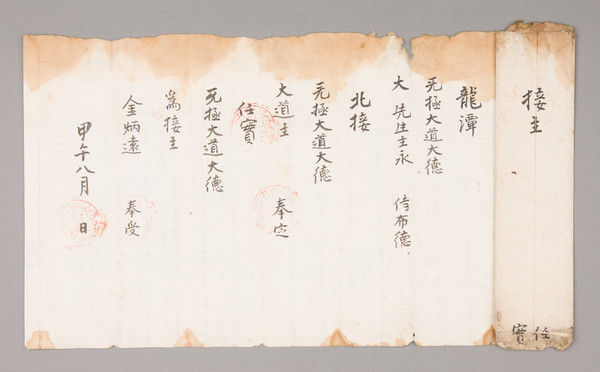 接主
任實
龍潭
无極大道大德
大先生主永 侍布德
北接
无極大道大德
大道主 奉定
任實
无極大道大德
爲接主
金炳遠 奉受
甲午八月 日